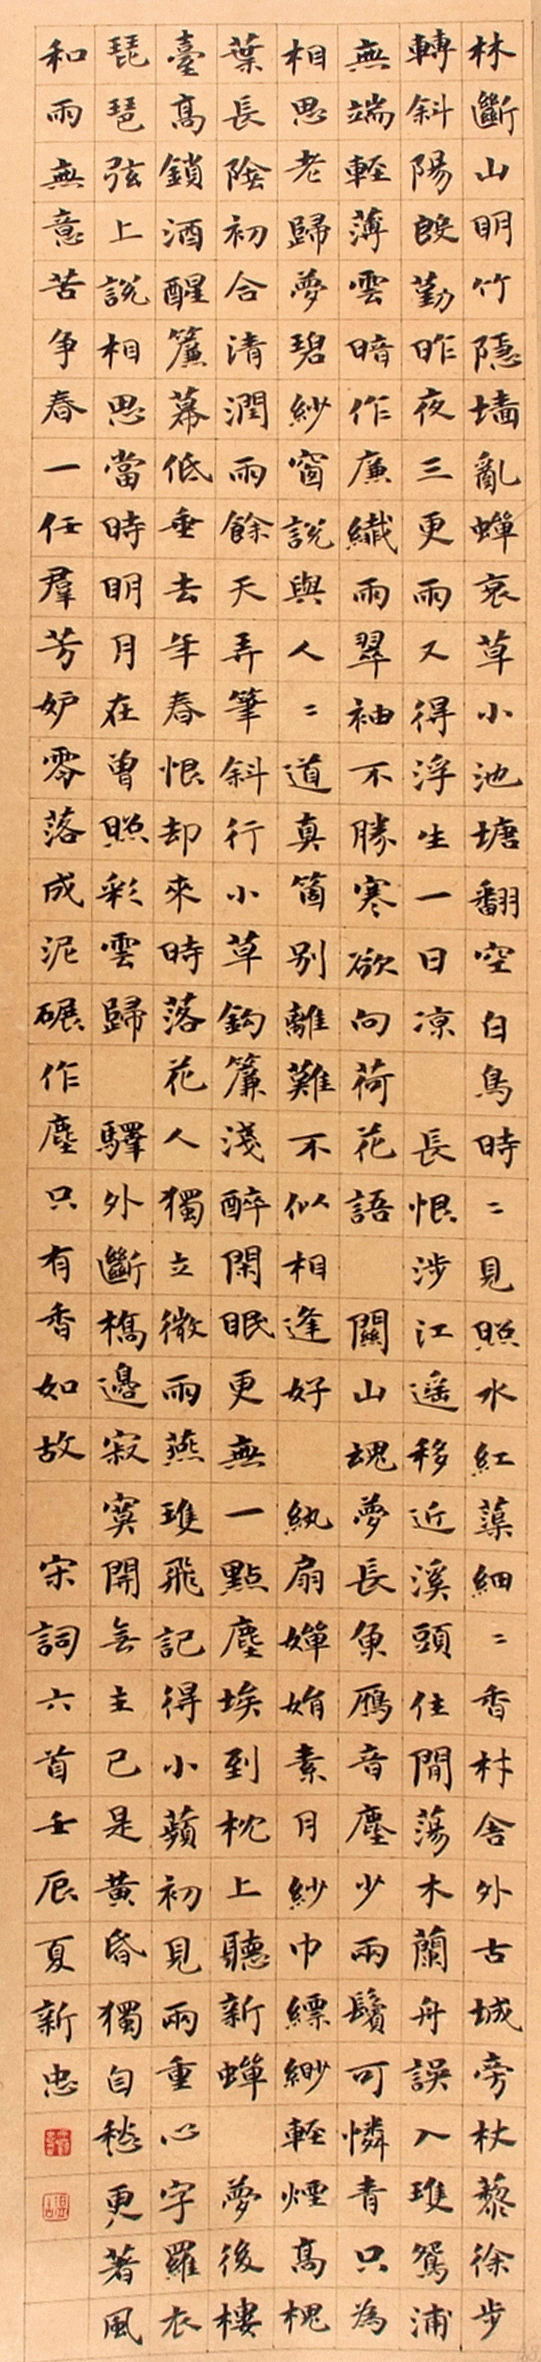 林斷山明竹隱墻亂蟬衰草小池塘翻空白鳥時二見照水紅蕖細二香村舍外古城旁杖藜徐步
轉斜陽殷勤昨夜三更雨又得浮生一日凉 長恨涉江遥移近溪頭住閒蕩木蘭舟誤入雙鴛浦
無端輕薄雲暗作廉纖雨翠袖不勝寒欲向荷花語 關山魂夢長魚鴈音塵少兩鬢可憐青只為
相思老歸夢碧紗窗説與人二道真箇別離難不似相逢好 紈扇嬋娟素月紗巾縹緲輕煙高槐
葉長陰初合清潤雨餘天弄筆斜行小草鈎簾淺醉閑眠更無一點塵埃到枕上聽新蟬 夢後樓
臺高鎖酒醒簾幕低垂去年春恨却來時落花人獨立微雨燕雙飛記得小蘋初見兩重心字羅衣
琵琶弦上説相思當時明月在曾照彩雲歸 驛外斷橋邊寂寞開無主已是黃昏獨自愁更著風
和雨無意苦争春一任羣芳妒零落成泥碾作塵只有香如故 宋詞六首壬辰夏新忠